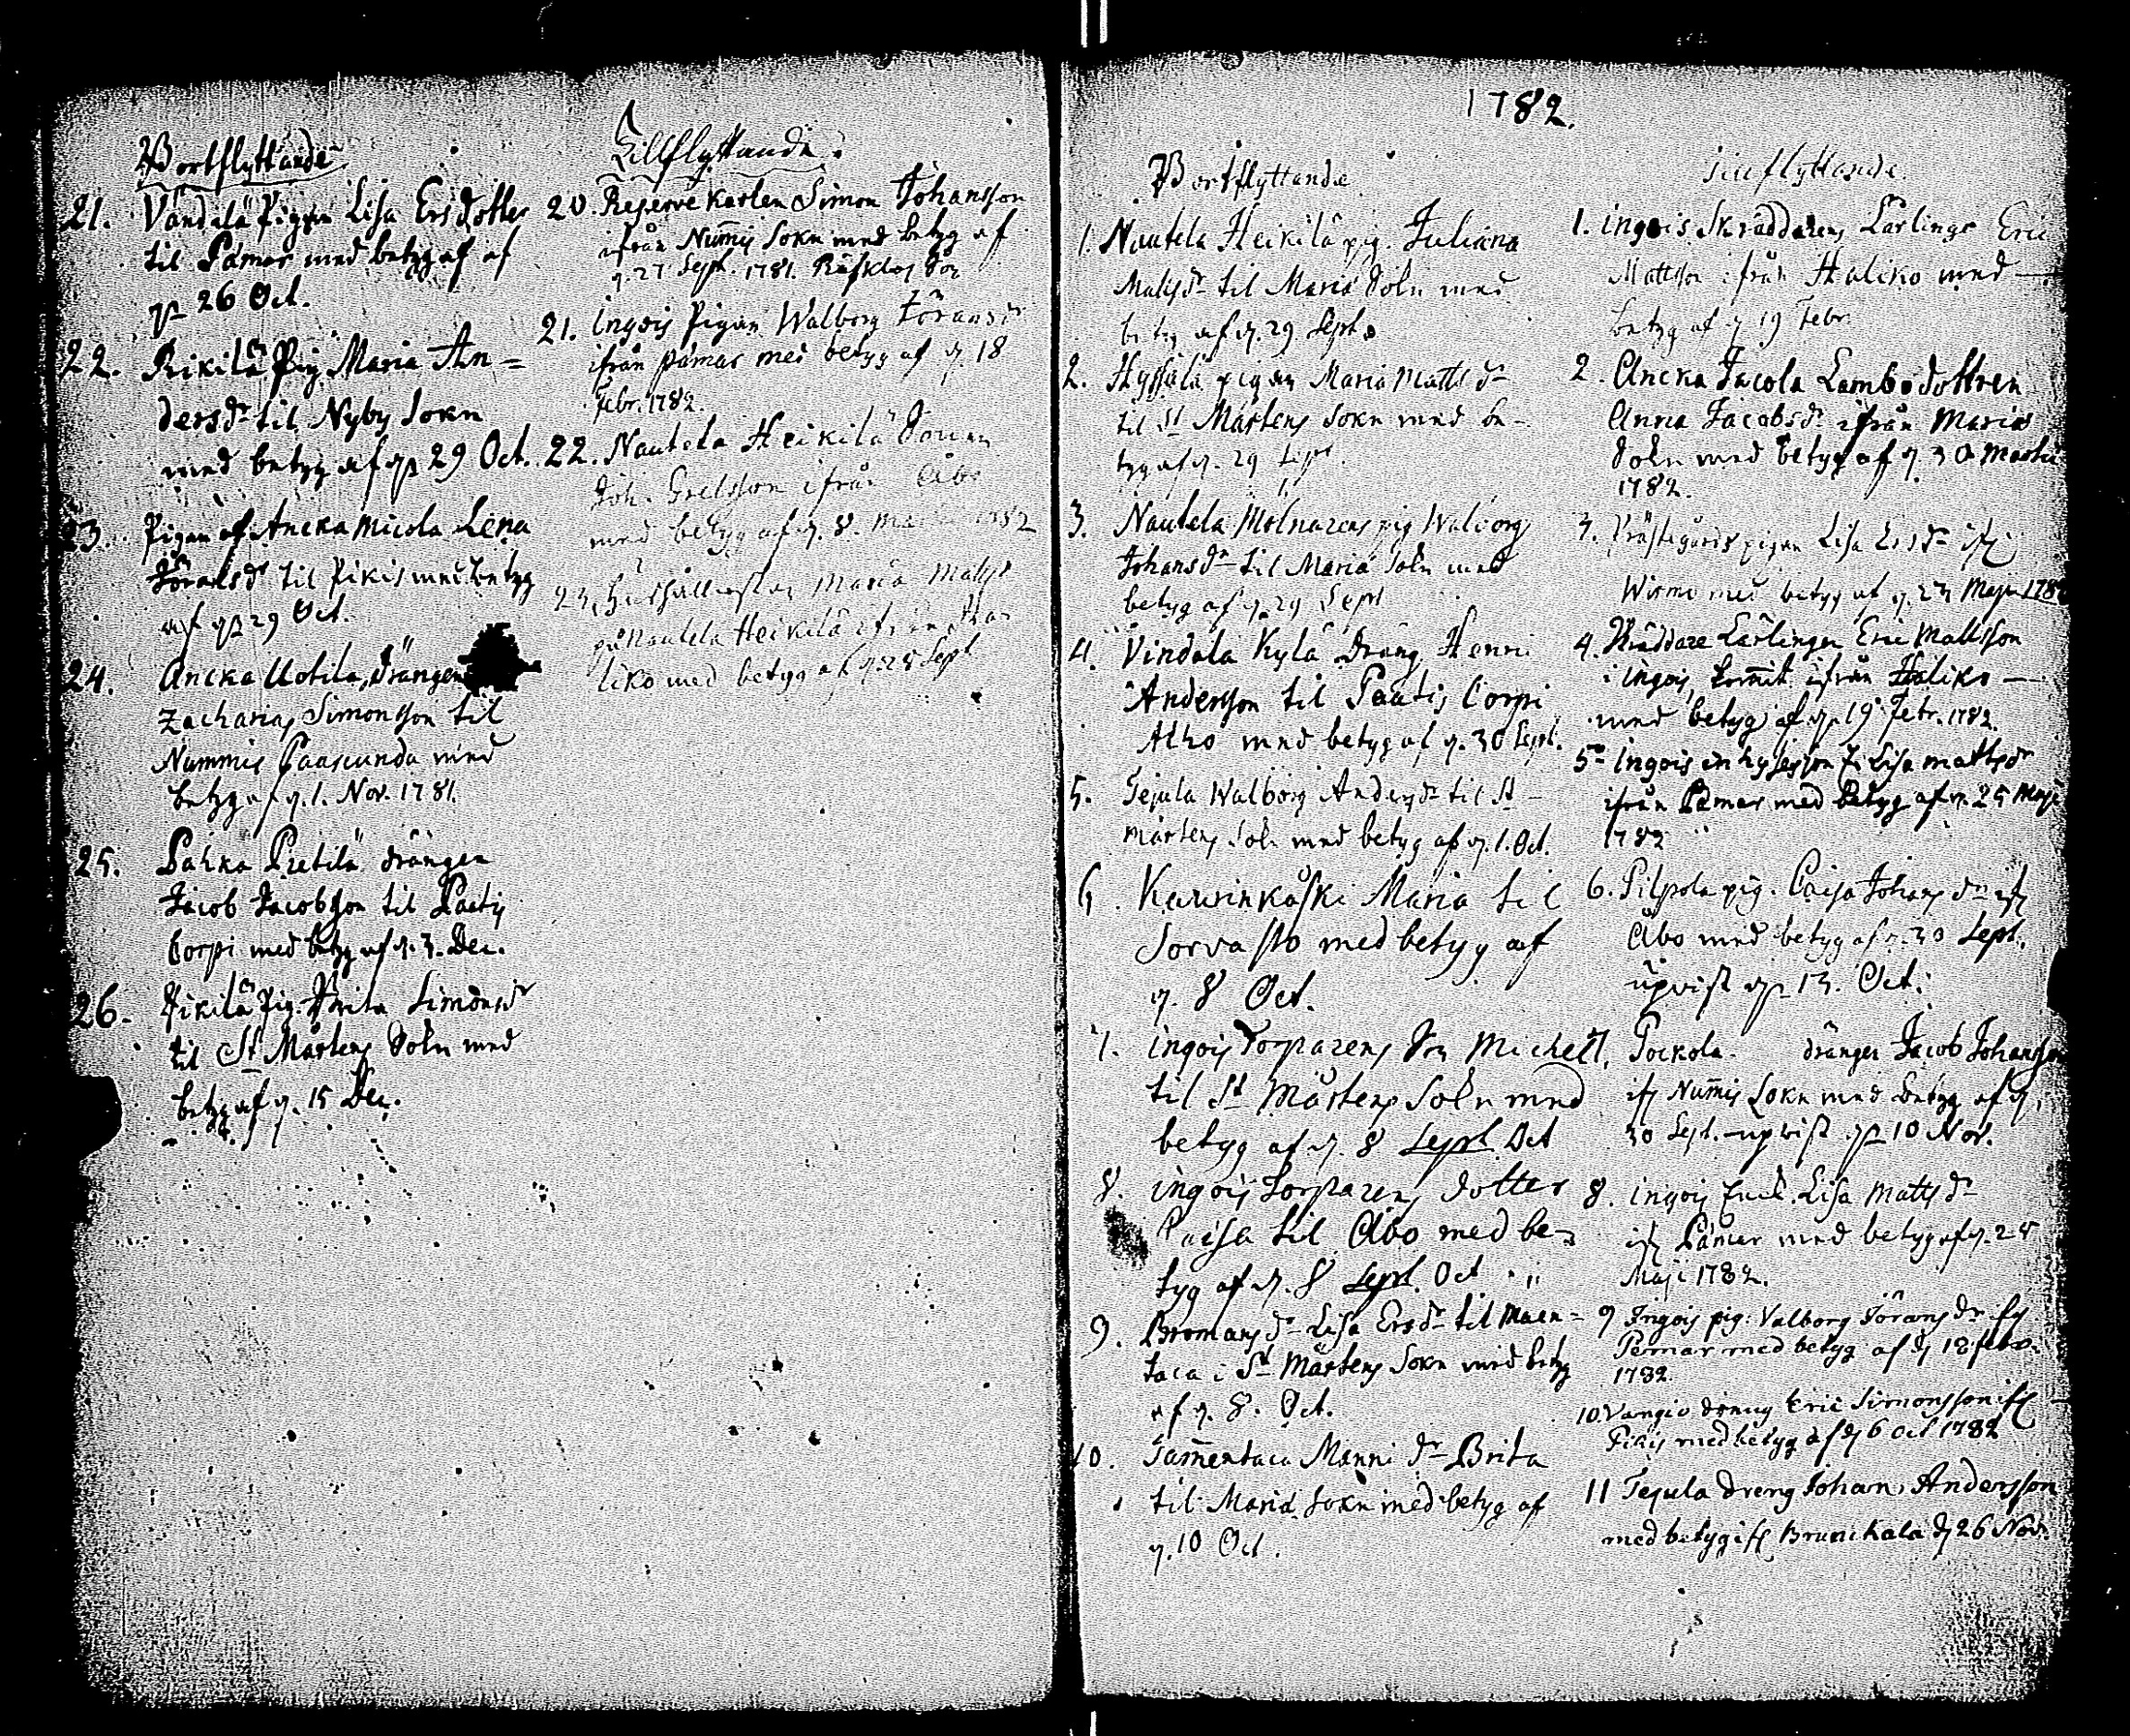 Bortflyttande
21. Vändälä Pigan Lisa Ersdotter
til Pämar med betyg af
26 Oct.
22. Rikilä Pig. Maria An=
dersdr til Nyby Sokn
med betyg af d. 29 Oct.
23. Pigan af Ancka Micola Lena
Göransdr til Pikis med betyg
af d. 29 Oct.
24. Ancka Uotila, drängen
Zacharias Simonsson til
Nummis Paascunda med
betyg af d. 1. Nov. 1781.
25. Lahka Pretilä drängen
Jacob Jacobsson til Paetis
Corpi med betyg af d. 3. Dec.
26. Rikilä Pig. Brita Simonsdr
til St Mårtens Sokn med
betyg af d. 15 Dec.
Tillflyttande.
20. Reserve karlen Simon Johansson
ifrån Num̄is Sokn med betyg af
d. 27 Sept. 1781.
21. Ingois Pigan Walborg Göransdr
ifrån pämar med betyg af d. 18
Febr. 1782.
22. Nautela Heikilä Sonen
Joh. Grelsson ifrån Åbo
med betyg af d. 8. Martii 1782
23. Maria Matsdr
på Nautela Heikilä ifrån Ha-
liko med betyg af d. 28 Sept
1782.
Bortflyttande
1. Nautela Heikilä pig. Juliana
Matsdr til Mariæ Sokn med
betyg af d. 29 Sept.
2. Hyssälä pigan Maria Mattsdr
til St Mårtens Sokn med be-
tyg af d. 29 Sept.
3. Nautela Mölnarens pig Walborg
Johansdr til Mariæ Sokn med
betyg af d. 29 Sept
4. Vindala Kylä Dräng Henric
Andersson til Paatis Corpi
Alho med betyg af d. 30 Sept.
5. Tejula Walborg Andersdr til St
Mårtens Sokn med betyg af d. 1. Oct.
6. Kaurinkåski Maria til
Sorvasto med betyg af
d. 8 Oct.
7. Ingois Torparens Son Michell
til St Mårtens Sokn med
betyg af d. 8 Sept. Oct
8. Ingois Torparens dotter
Caisa til Åbo med be-
tyg af d. 8 Sept. Oct
9. Bromans dr Lisa Ersdr til Maen=
taca i St Mårtens Sokn med betyg
af d. 8. Oct.
10. Tam̄entaca Manni dr Brita
til Mariæ Sokn med betyg af
d. 10 Oct.
inflyttande.
1. Ingois Skräddarens Lärlinge Eric
Mattsson ifrån Haliko med
betyg af d. 19 Febr.
2. Ancka Jacola Lambo dottren
Anna Jacobsdr ifrån Mariæ
Sokn med betyg af d. 30 Martii
1782.
3. Prästegårds pigan Lisa Ersdr ifr
Wirmo med betyg af d. 23 Maji 1782
4. Skräddare Lärlingen Eric Mattsson
i Ingois, kom̄it ifrån Haliko
med betyg af d. 19 Febr. 1782.
5. Ingois Lisa mattsdr
ifrån Pämar med betyg af d. 25 Maji
1782
6. Pilpola pig. Caisa Johansdr ifr
Åbo med betyg af d. 30 Sept.
upvist d. 13. Oct.
7. Pockola drängen Jacob Johansson
ifr Num̄is Sokn med betyg af d.
30 Sept. upvist d. 10 Nov.
8. Ingois Lisa Mattsdr
ifr Pämar med betyg af d. 25
Maji 1782.
9 Ingois pig: Valborg Göransdr ifr
Pemar med betyg af d 18 febr.
1782.
10. Vangio dräng Eric Simonsson ifr
Pikis med betyg af d 6 oct 1782
11 Tejula dreng Johan Andersson
med betyg ifr Brunkala d 26 Nov.